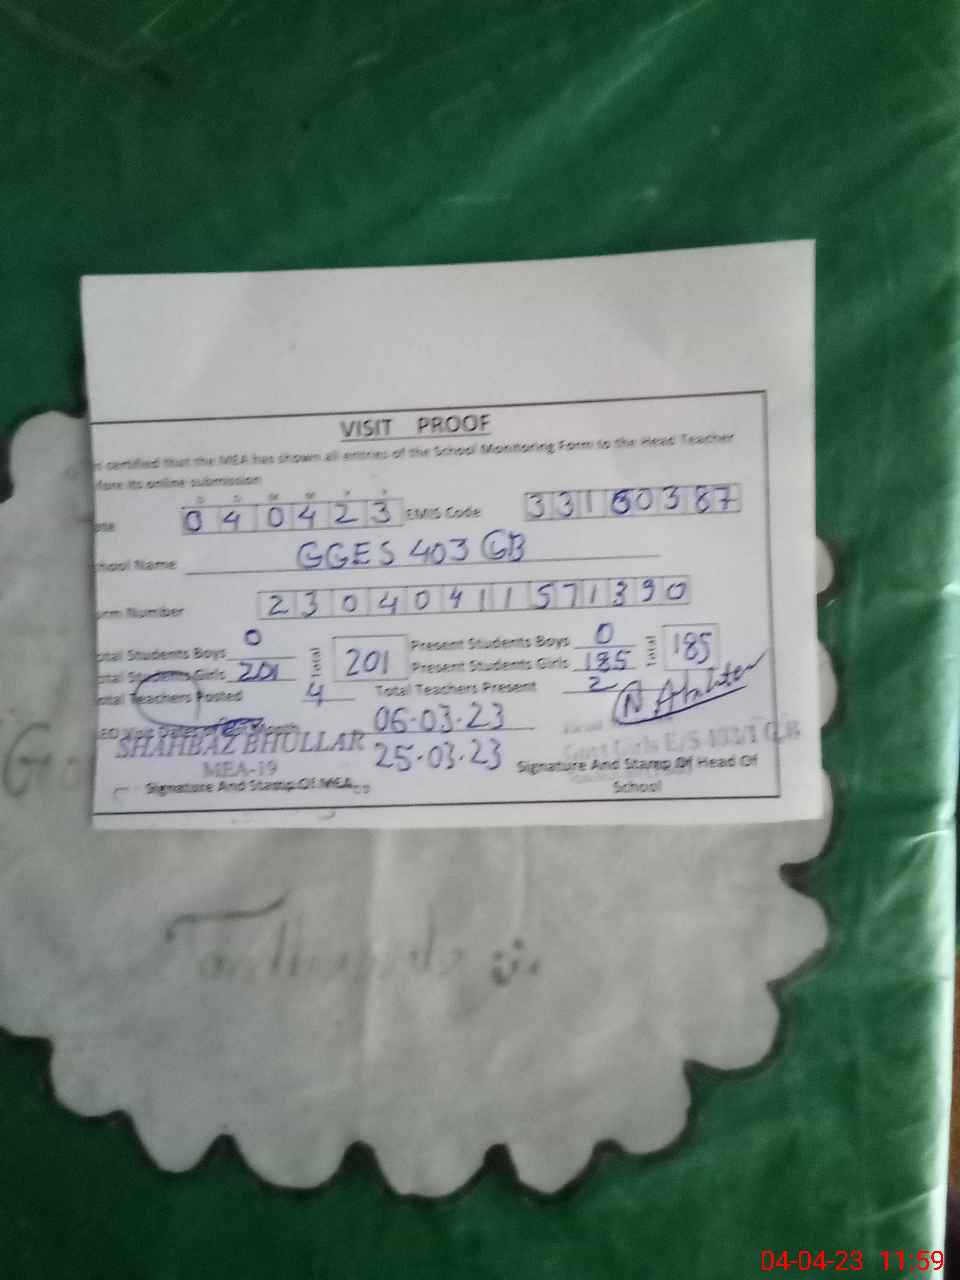 VISIT PROOF
certified that the MEA has shown all entries of the School Monitoring Form to the Head Teacher
fore its online submission
D D M M Y Y
ate 040423 EMIS Code 33160387
hool Name GGES 403 GB
orm Number 23040411571390
otal Students Boys 0 Total 201 Present Students Boys 0 Total 185
otal Students Girls 201 Present Students Girls 185
otal Teachers Posted 4 Total Teachers Present 2
06-03-23
SHAHBAZ BHULLAR
25-03-23
MEA-19
Signature And Stamp Of MEA
Signature And Stamp Of Head Of
School
04-04-23 11:59